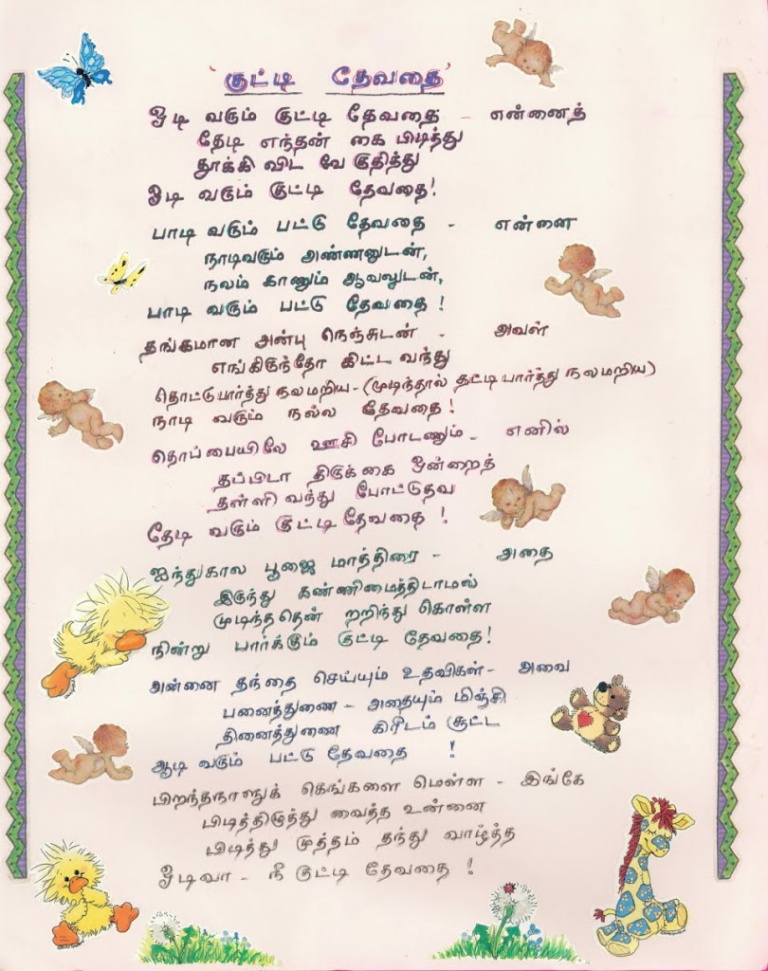 'குட்டி தேவதை'
ஓடி வரும் குட்டி தேவதை - என்னைத்
தேடி எந்தன் கை பிடித்து
தூக்கி விட வே குதித்து
ஓடி வரும் குட்டி தேவதை!
பாடி வரும் பட்டு தேவதை - என்னை
நாடிவரும் அண்ணனுடன்,
நலம் காணும் ஆவலுடன்,
பாடி வரும் பட்டு தேவதை !
தங்கமான அன்பு நெஞ்சுடன் - அவள்
எங்கிருந்தோ கிட்ட வந்து
தொட்டுபார்த்து நலமறிய - (முடிந்தால் தட்டி பார்த்து நலமறிய)
நாடி வரும் நல்ல தேவதை !
தொப்பையிலே ஊசி போடணும் - எனில்
தப்பிடா திருக்கை ஒன்றைத்
தள்ளி வந்து போட்டுதவ
தேடி வரும் குட்டி தேவதை !
ஐந்துகால பூஜை மாத்திரை - அதை
இருந்து கண்ணிமைத்திடாமல்
முடிந்ததென் றறிந்து கொள்ள
நின்று பார்க்கும் குட்டி தேவதை!
அன்னை தந்தை செய்யும் உதவிகள் - அவை
பனைத்துணை - அதையும் மிஞ்சி
தினைத்துணை கிரீடம் சூட்ட
ஆடி வரும் பட்டு தேவதை !
பிறந்தநாளுக் கெங்களை மெள்ள - இங்கே
பிடித்திழுத்து வைத்த உன்னை
பிடித்து முத்தம் தந்து வாழ்த்த
ஓடிவா - நீ குட்டி தேவதை !